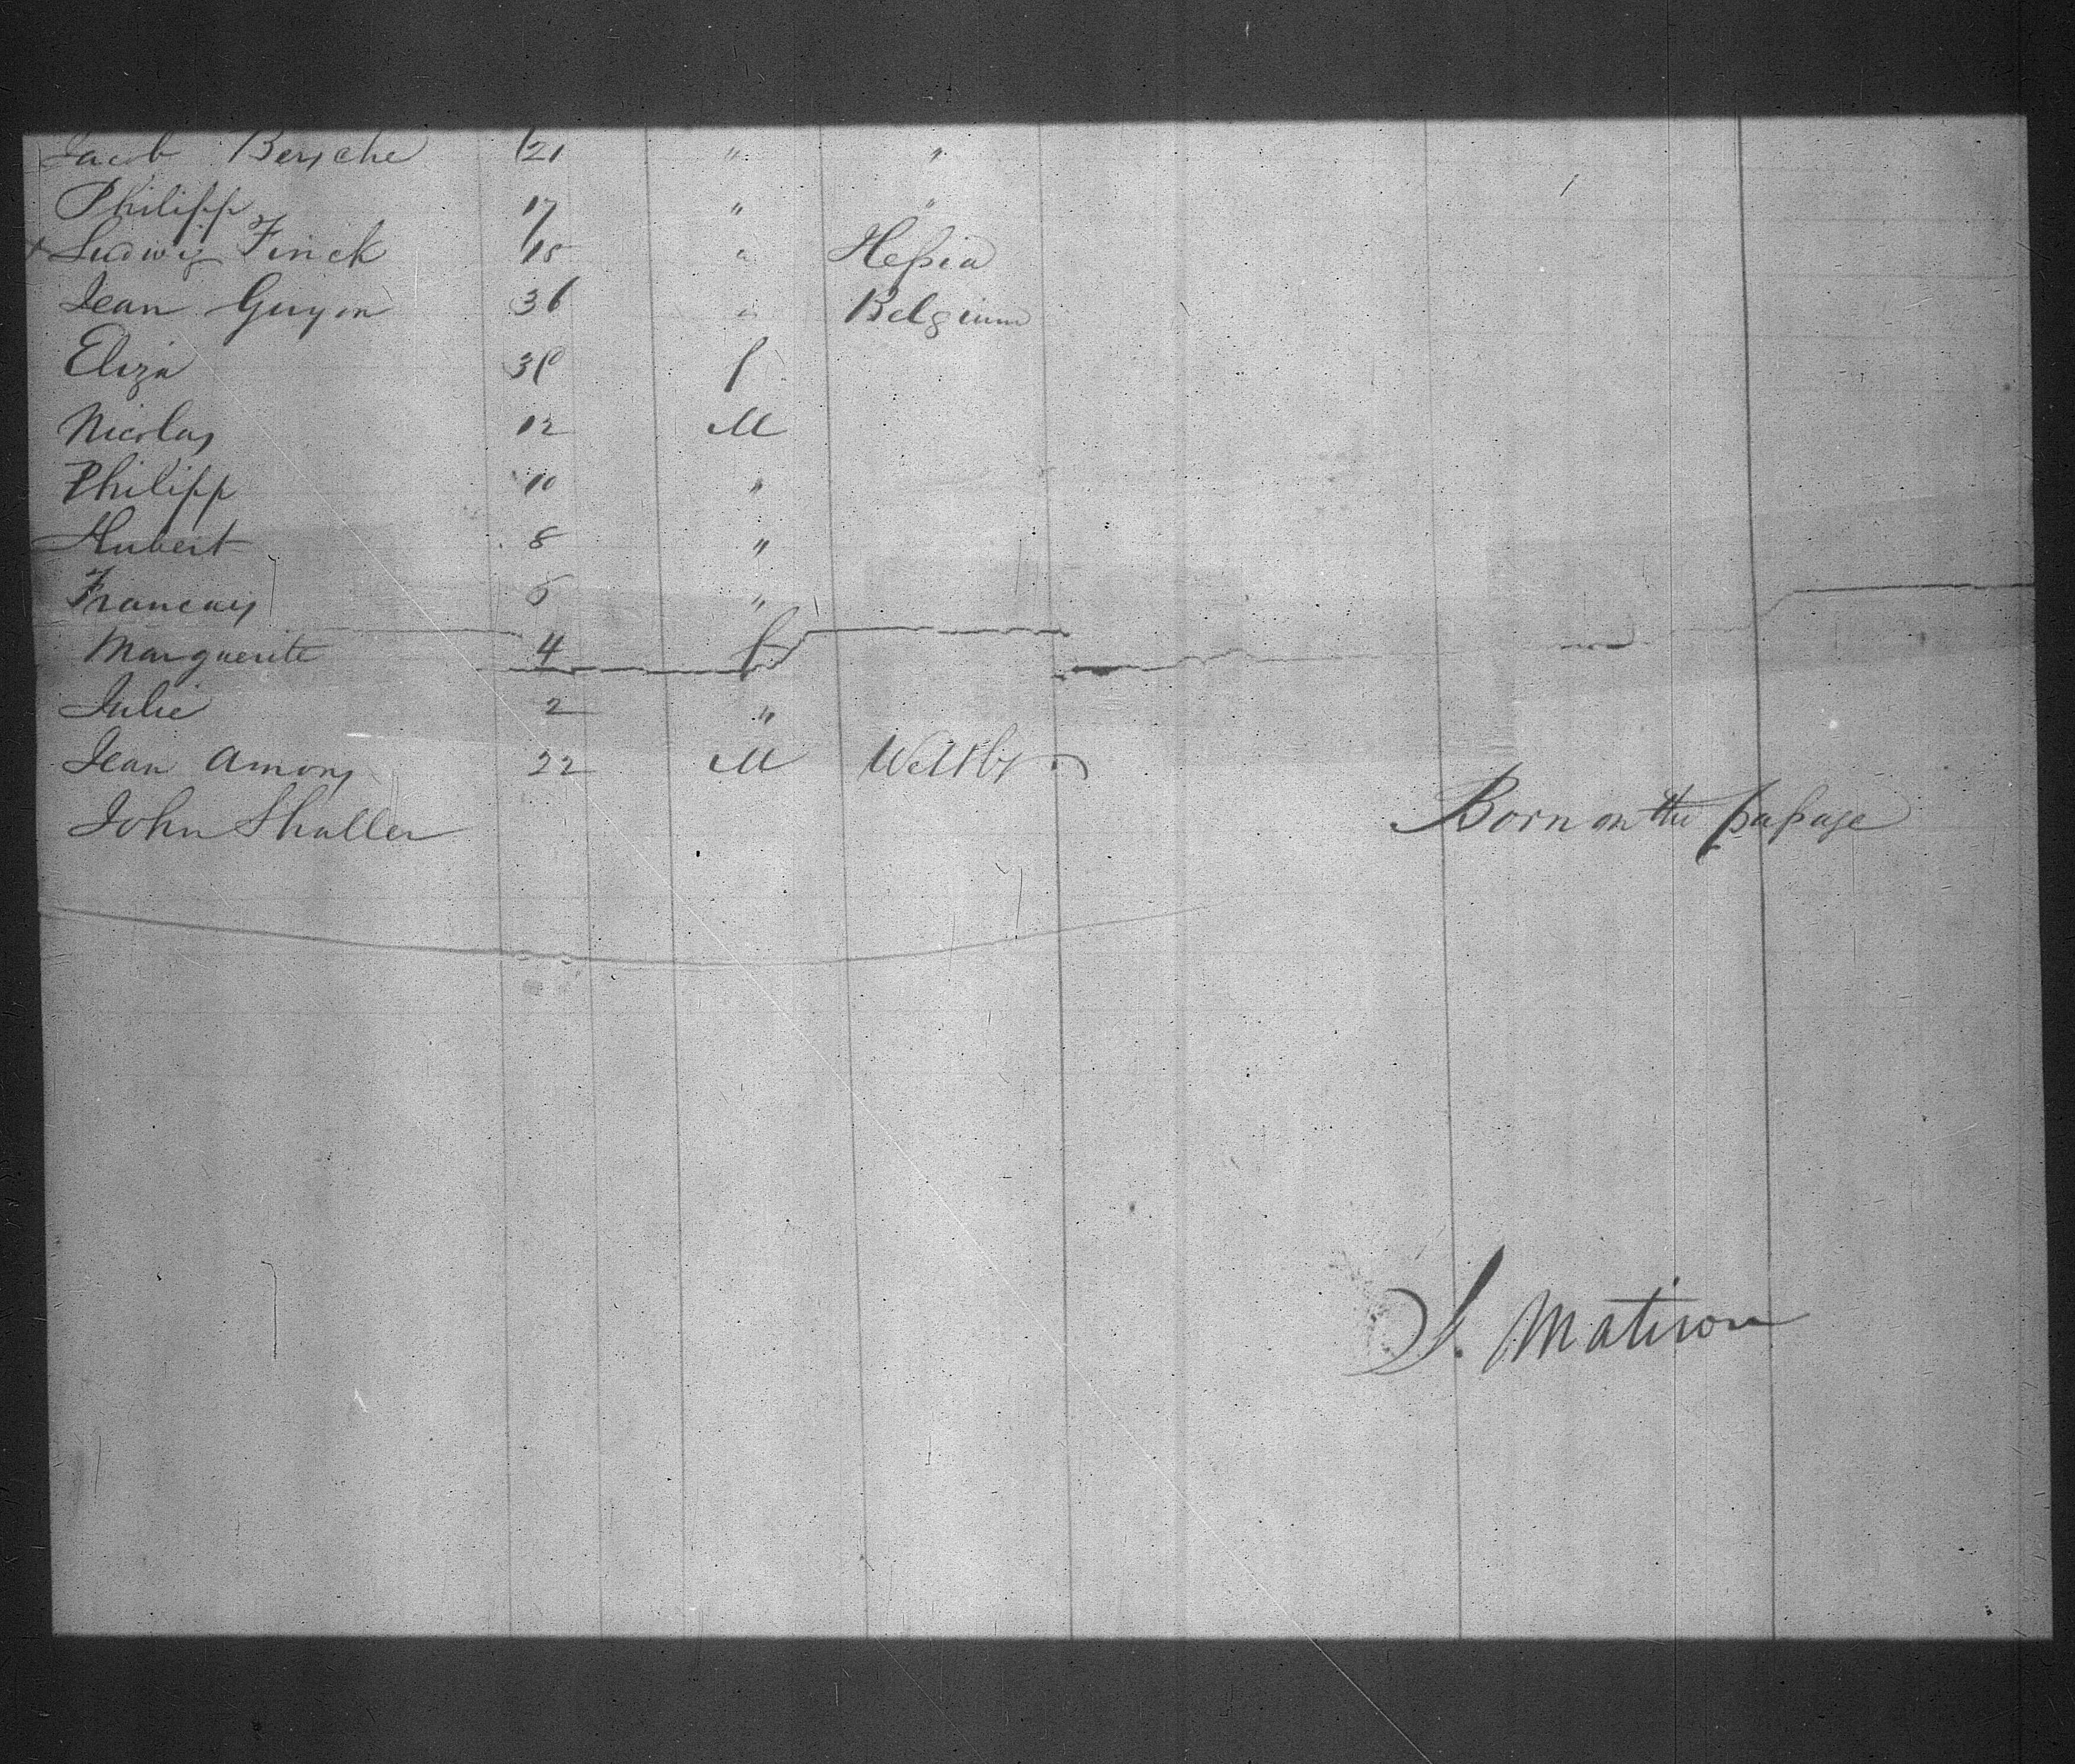 Jacob Bersche 21 " "
Philipp 17 " "
Ludwig Finck 18 " Heßia
Jean Guyon 36 " Belgium
Eliza 38 f
Nicolas 12 M
Philipp 10 "
Hubert 8 "
Francais 5 "
Marguerite 4 f
Julie 2 "
Jean Amony 22 M
John Shaller Born on the paßage
S. Matison